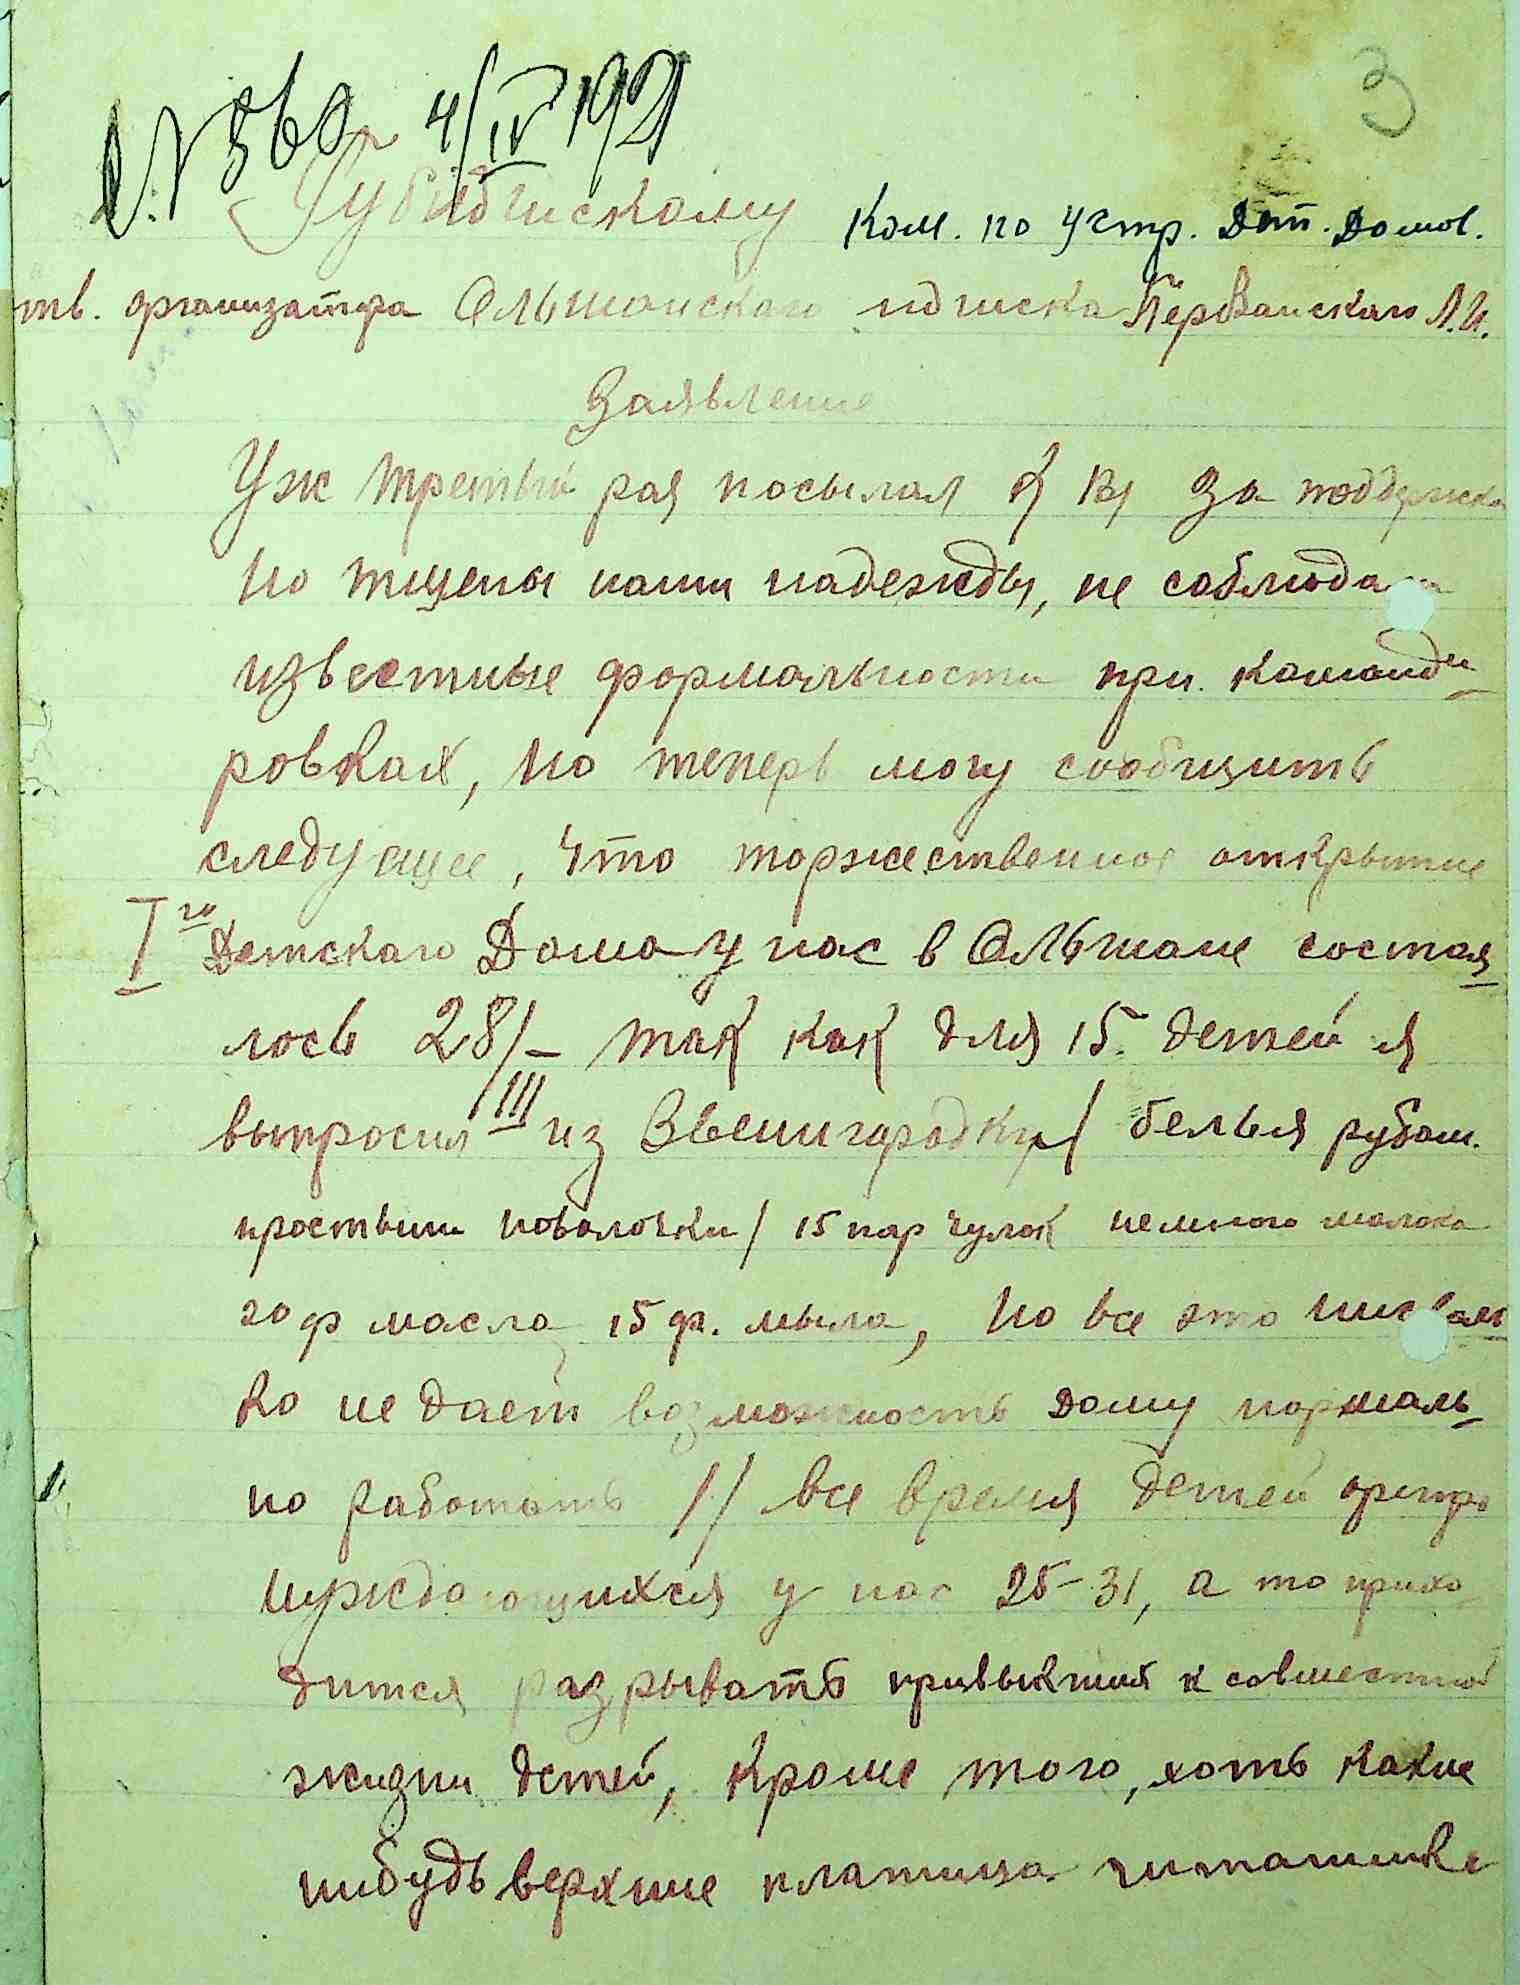 3
№ 560 4/IV 1921
Губидгискому Ком. по устр. Дет. Домов.
тв. организатора Ольшанскаго идгиска Перванскаго Л.И.
Заявление
Уж третий раз посылал к Вы за поддержко
но тщены наши надежды, не соблюда
известные формальности при команди-
ровках, но теперь могу сообщить
следующее, что торжественное открытие
I го Детскаго Дома у нас в Ольшане состоя-
лось 28/III – так как для 15 детей я
выпросил из Звенигородки / белья рубаш.
простыни наволочки / 15 пар чулок немного молока
20 ф масла 15 ф. мыла, но все это нисколь-
ко не дает возможность дому нормаль-
но работать // все время детей
нуждающихся у нас 25–31, а то прихо-
дится разрывать привыкших к совместной
жизни детей, кроме того, хоть какие
нибудь верхние платица